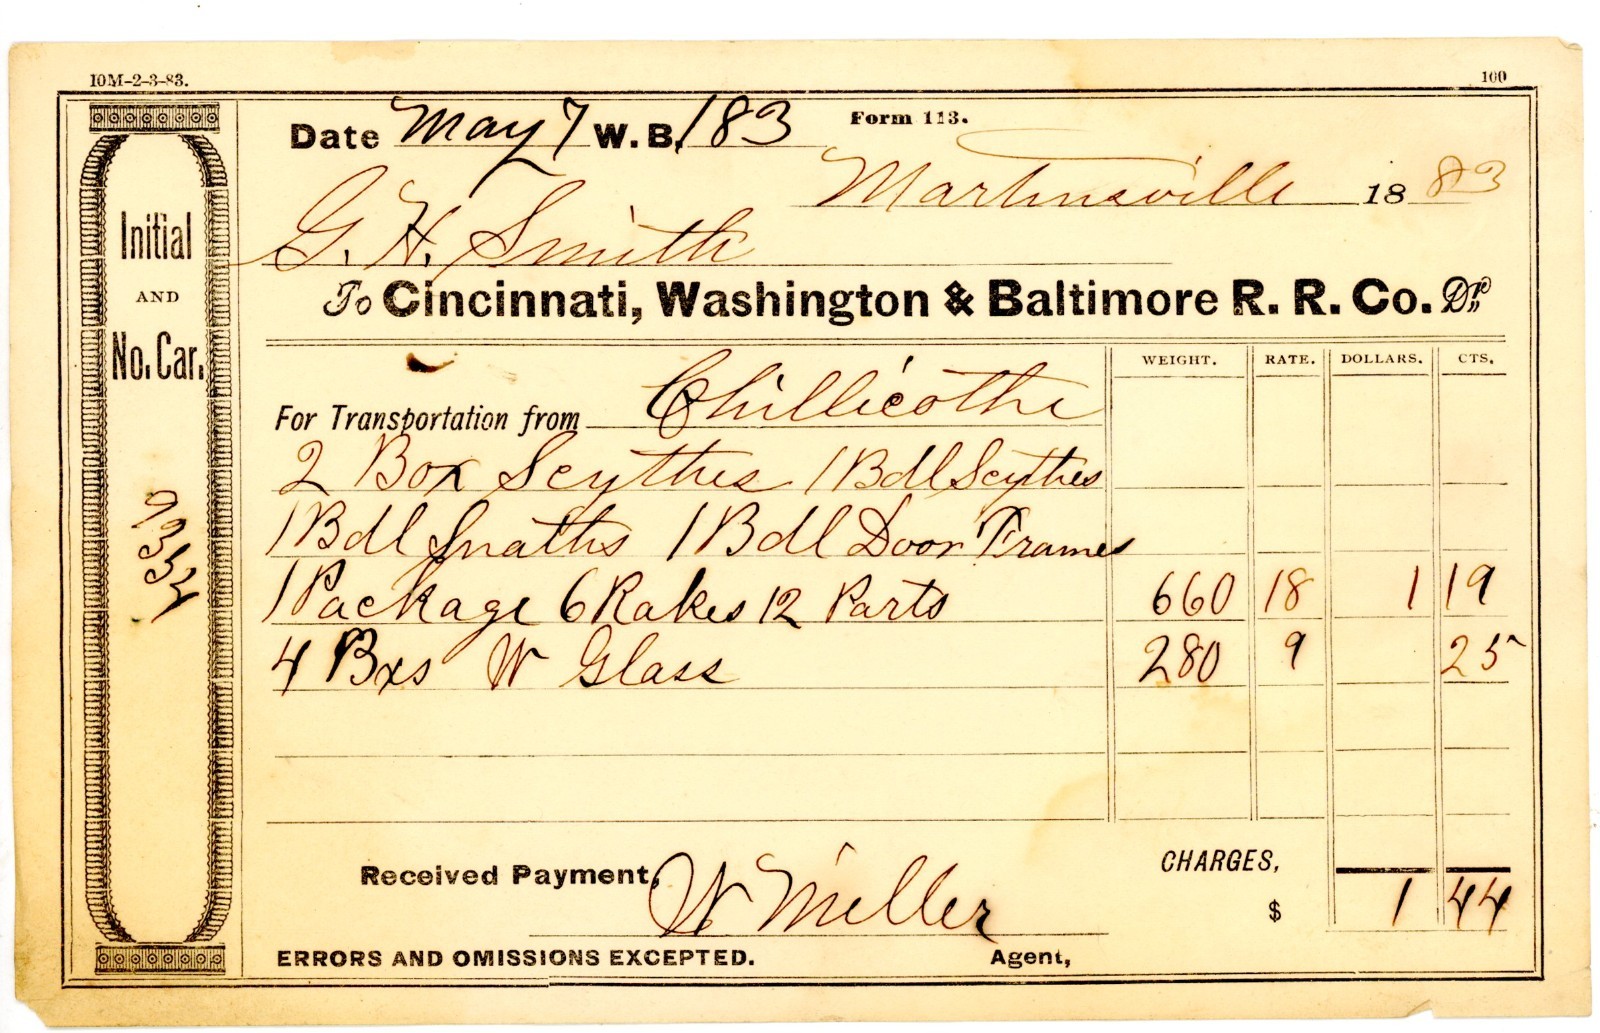 10M-2-3-83.
100
Form 113.
Date May 7 W.B. 183
Martinsville 1883
G. H. Smith
To Cincinnati, Washington & Baltimore R. R. Co. Dr.
WEIGHT. RATE. DOLLARS. CTS.
For Transportation from Chillicothe
2 Box Scythes 1 Bdl Scythes
1 Bdl Snaths 1 Bdl Door Frames
1 Package 6 Rakes 12 Parts 660 18 1 19
4 Bxs W Glass 280 9 25
CHARGES,
Received Payment, W Miller $ 1 44
ERRORS AND OMISSIONS EXCEPTED. Agent,
Initial
AND
No. Car.